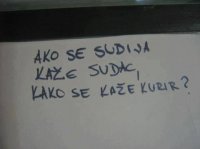 AKO SE SUDIJA
KAŽE SUDAC,
KAKO SE KAŽE KURIR?